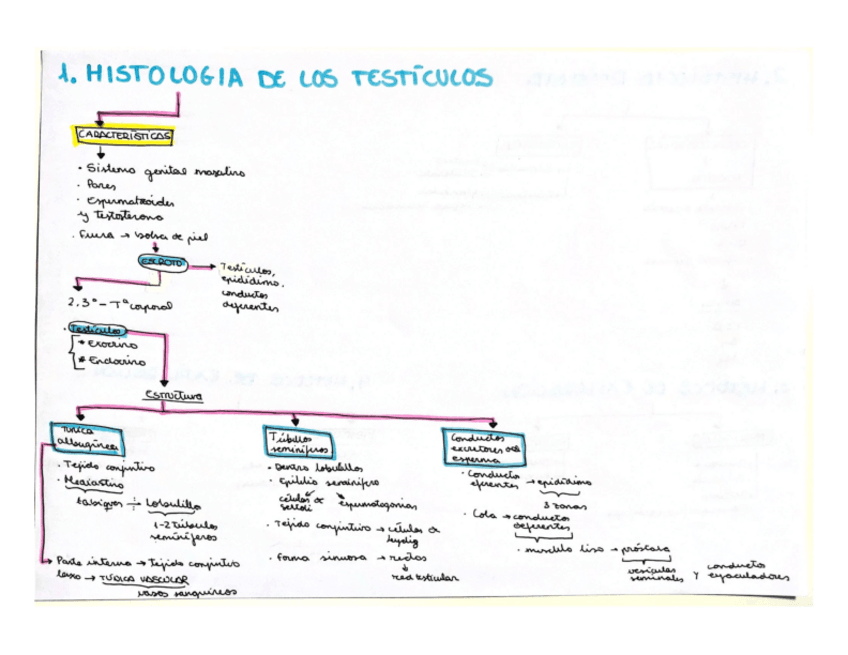 1. HISTOLOGIA DE LOS TESTÍCULOS
CARACTERÍSTICAS
· Sistema genital masculino
· Pares
· Espermatozoides
y testosterona
· Fuera → bolsa de piel
ESCROTO → Testículos,
epidídimo,
conductos
deferentes
2.3° - Tª corporal
· Testículos
* Exocrino
* Endocrino
Estructura
Túnica
albugínea
· Tejido conjuntivo
· Mediastino
tabiques ÷ Lobulillo
1-2 túbulos
seminíferos
Parte interna → Tejido conjuntivo
laxo → TÚNICA VASCULAR
vasos sanguíneos
Túbulos
seminíferos
· Dentro lobulillos
· Epitelio seminífero
células de
sertoli
espermatogonias
· Tejido conjuntivo → células de
leydig
· Forma sinuosa → rectos
↓
red testicular
Conductos
excretores de
esperma
· Conducto
eferentes → epidídimo
3 zonas
· Cola → conductos
deferentes
· musculo liso → próstata
vesículas
seminales y conducto
eyaculadores